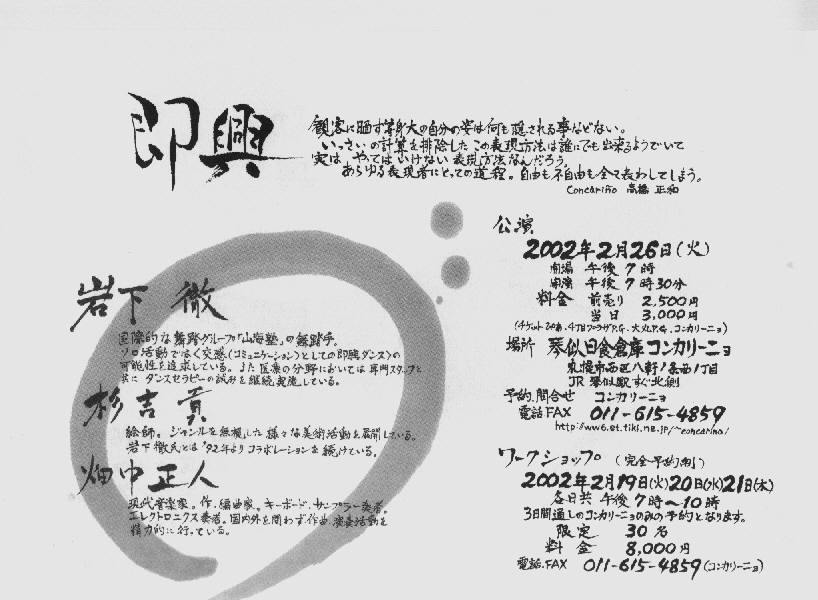 即興
観客に晒す等身大の自分の姿は何も隠される事などない。
いっさいの計算を排除したこの表現方法は誰にでも出来るようでいて
実は、やってはいけない表現方法なんだろう。
あらゆる表現者にとっての道程。自由も不自由も全て表わしてしまう。
Concariño 高橋 正和
岩下 徹
国際的な舞踏グループ「山海塾」の舞踏手。
ソロ活動では〈交感(コミュニケーション)としての即興ダンス〉の
可能性を追求している。また医療の分野においては専門スタッフと
共に ダンスセラピーの試みを継続実施している。
杉吉 貢
絵師。ジャンルを無視した様々な美術活動を展開している。
岩下徹氏とは'92年よりコラボレーションを続けている。
畑中正人
現代音楽家。作・編曲家。キーボード、サンプラー奏者。
エレクトロニクス奏者。国内外を問わず作曲、演奏活動を
精力的に行っている。
公演
2002年2月26日(火)
開場 午後7時
開演 午後7時30分
料金 前売り 2,500円
当日 3,000円
(チケット 4丁目プラザP.G. 大丸P.G. コンカリーニョ)
場所 琴似日食倉庫コンカリーニョ
札幌市西区八軒1条西1丁目
JR 琴似駅すぐ北側
予約、問合せ コンカリーニョ
電話FAX 011-615-4859
http://ww6.et.tiki.ne.jp/~concarino/
ワークショップ (完全予約制)
2002年2月19日(火)20日(水)21日(木)
各日共 午後7時〜10時
3日間通しのコンカリーニョのみの予約となります。
限定 30名
料金 8,000円
電話.FAX 011-615-4859(コンカリーニョ)